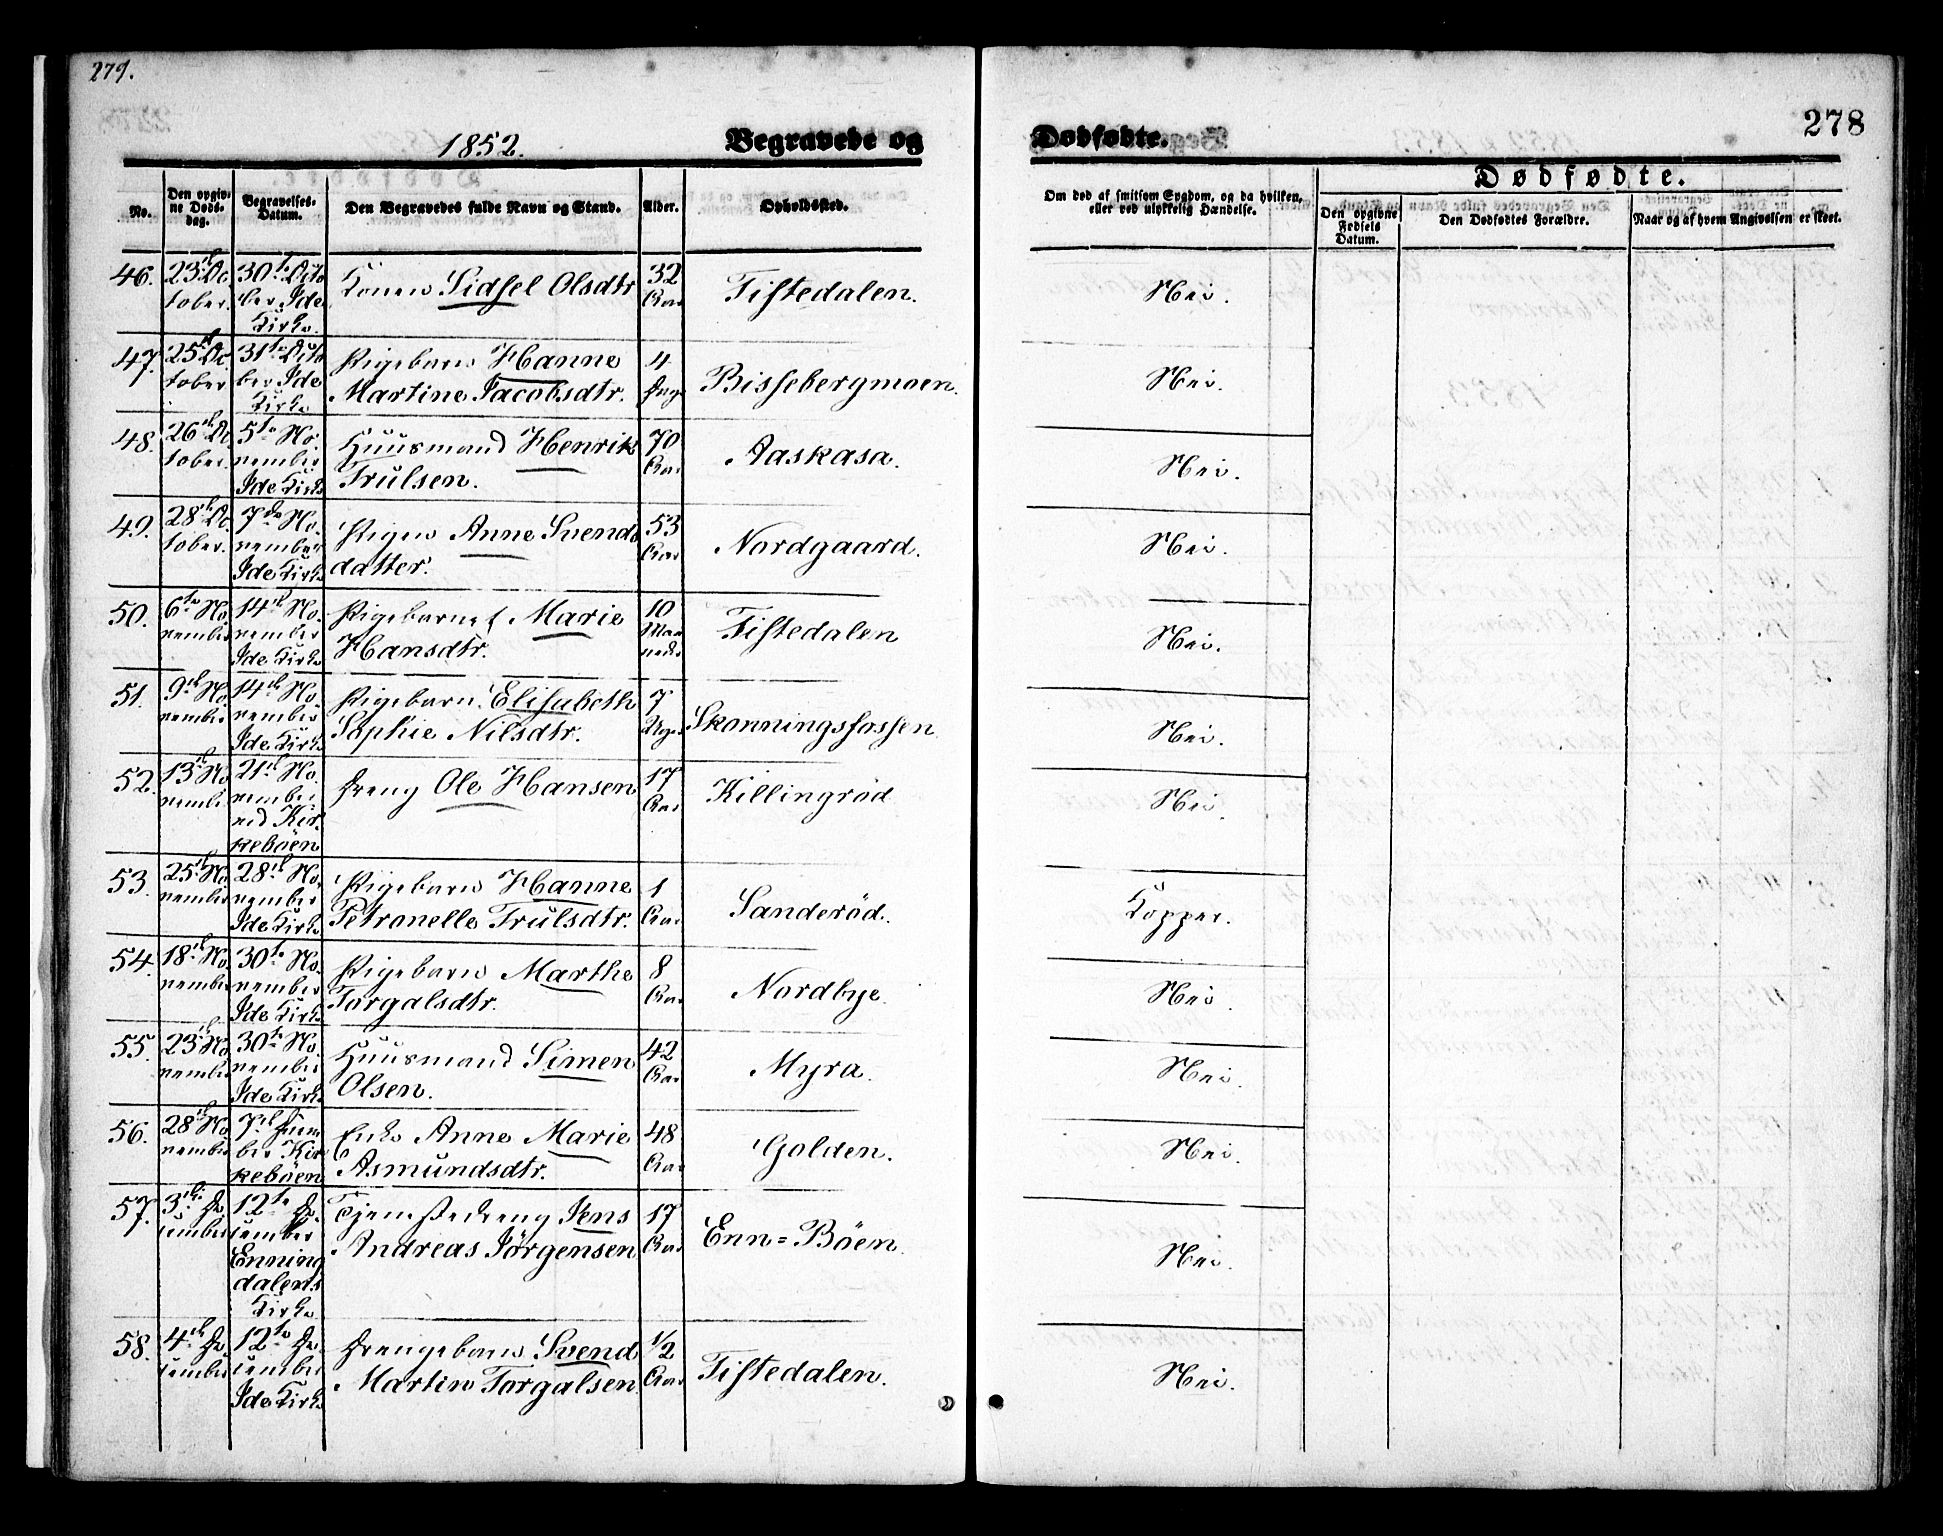 279.
278
1852.
Begravede og
Dødfødte.
No.
Den opgiv-
ne Døds-
dag.
Begravelses-
Datum.
Den Begravedes fulde Navn og Stand.
Alder.
Opholdssted.
Om død af smitsom Sygdom, og da hvilken,
eller ved ulykkelig Hændelse.
Dødfødte.
Den opgivne
Fødsels
Datum.
Den Dødfødtes Forældre.
Naar og af hvem Angivelsen er skeet.
46.
23de Oc
tober.
30te Octo
ber Ide
Kirke.
Konen Sidsel Olsdtr
32
Aar
Tistedalen.
Nei.
47.
25de Oc
tober
31te Octo
ber Ide
Kirke
Pigebarn Hanne
Martine Jacobsdtr.
4
Dage
Bissebergmoen.
Nei.
48.
26de Oc
tober.
5te No
vember
Ide Kirke
Huusmand Henrik
Trulsen.
70
Aar
Aaskasa.
Nei.
49.
28de Oc
tober.
7de No
vember
Ide Kirke
Pigen Anne Svends
datter.
53
Aar
Nordgaard.
Nei.
50.
6te No
vember
14de No.
vember
Ide Kirke
Pigebarnet Marie
Hansdtr.
10
Maa
neder
Tistedalen
Nei.
51.
9de No.
vember
14de No.
vember
Ide Kirke
Pigebarn Elisabeth
Sophie Nilsdtr.
7
Uger
Skonningsfossen
Nei.
52.
13de No
vember
21de No.
vember
ved Kir-
kebøen
Dreng Ole Hansen
17
Aar
Killingrød
Nei.
53.
25de No.
vember
28de No.
vember
Ide Kirke
Pigebarn Hanne
Petronelle Trulsdtr.
1
Aar
Sanderød.
Kopper.
54.
18de No.
vember
30te No.
vember
Ide Kirke
Pigebarn Marthe
Torgalsdtr.
8
Aar
Nordbye.
Nei.
55.
23de No
vember
30te No.
vember
Ide Kirke
Huusmand Simen
Olsen.
42
Aar
Myra.
Nei.
56.
28de No.
vember
7de Decem
ber Kir
kebøen
Enke Anne Marie
Asmundsdtr.
48
Aar
Golden.
Nei.
57.
3die De
cember
12te De
cember
Enning
dalens
Kirke
Tjenestedreng Jens
Andreas Jørgensen
17
Aar
Enn=Bøen.
Nei.
58.
4de De
cember
12te De
cember
Ide Kirke
Drengebarn Svend
Martin Torgalsen
1/2
Aar
Tistedalen.
Nei.